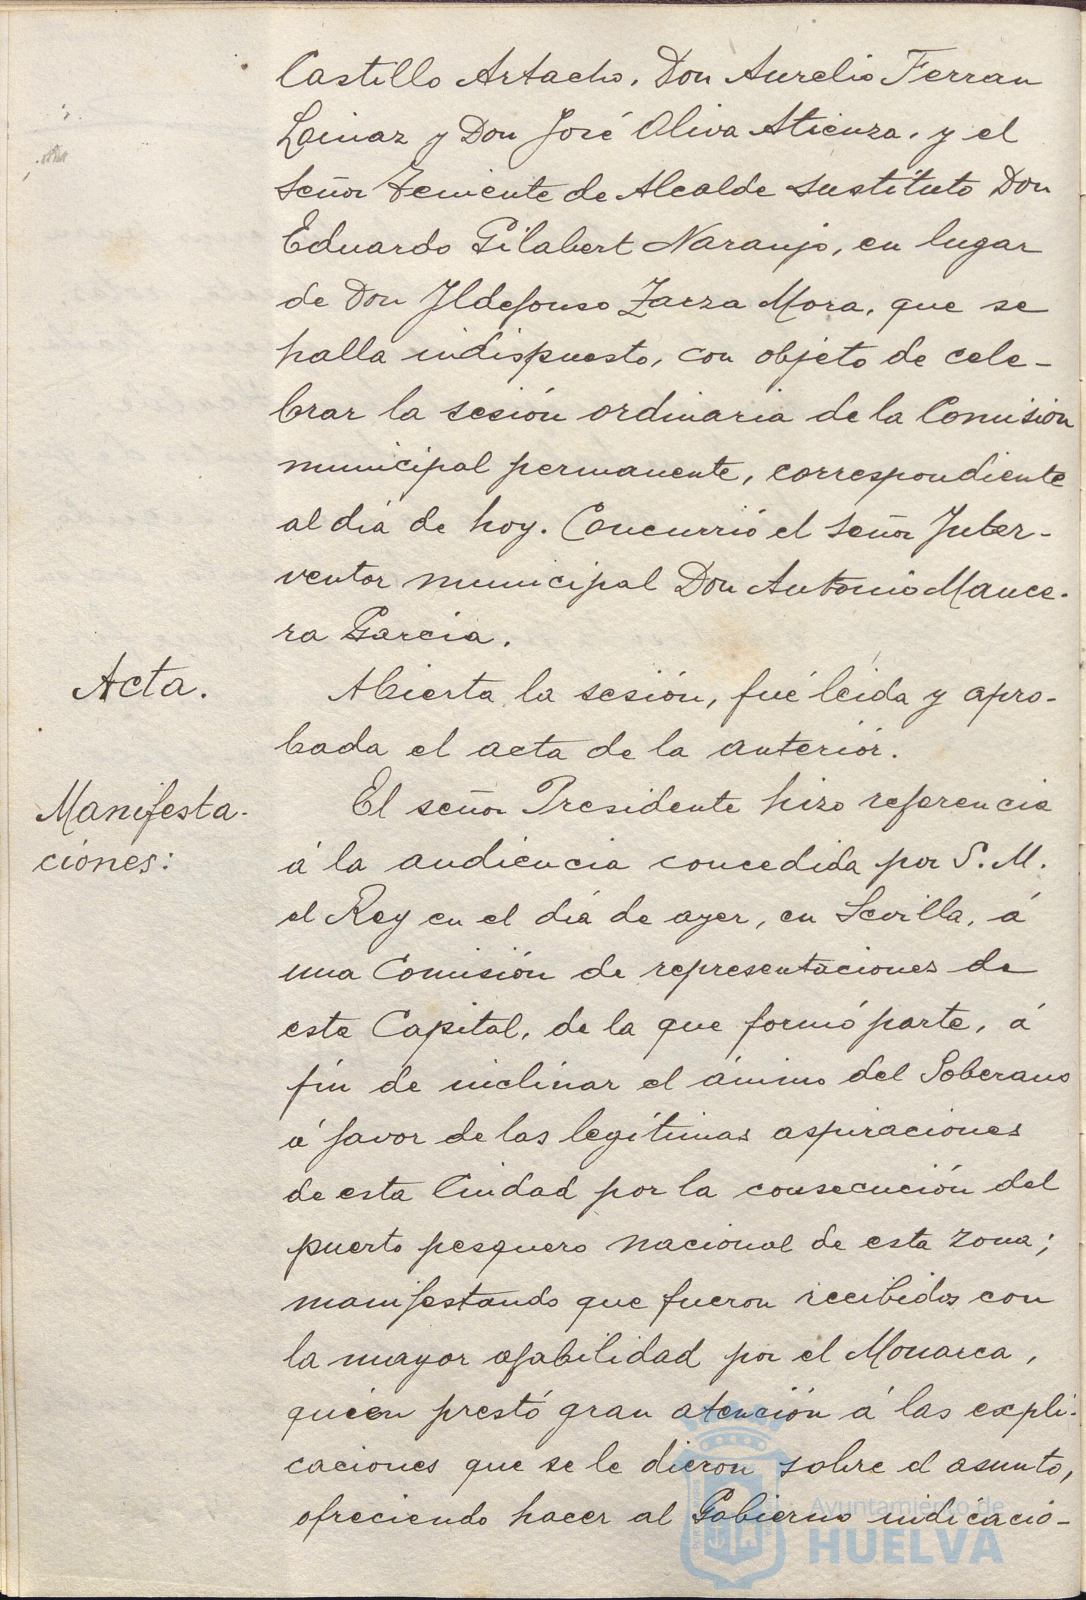 Castillo Artacho, Don Aurelio Ferran
Lainaz y Don José Oliva Atienza, y el
Señor Teniente de Alcalde sustituto Don
Eduardo Gilabert Naranjo, en lugar
de Don Ildefonso Zarza Mora, que se
halla indispuesto, con objeto de cele-
brar la sesión ordinaria de la Comisión
municipal permanente, correspondiente
al día de hoy. Concurrió el Señor Inter-
ventor municipal Don Antonio Mance-
ra Garcia.
Acta.
Abierta la sesión, fué leída y apro-
bada el acta de la anterior.
Manifesta-
ciones:
El señor Presidente hizo referencia
á la audiencia concedida por S. M.
el Rey en el día de ayer, en Sevilla, á
una Comisión de representaciones de
esta Capital, de la que formó parte, á
fin de inclinar el ánimo del Soberano
á favor de las legítimas aspiraciones
de esta Ciudad por la consecución del
puerto pesquero nacional de esta zona;
manifestando que fueron recibidos con
la mayor afabilidad por el Monarca,
quien prestó gran atención á las expli-
caciones que se le dieron sobre el asunto,
ofreciendo hacer al Gobierno indicacio-
Ayuntamiento de
HUELVA